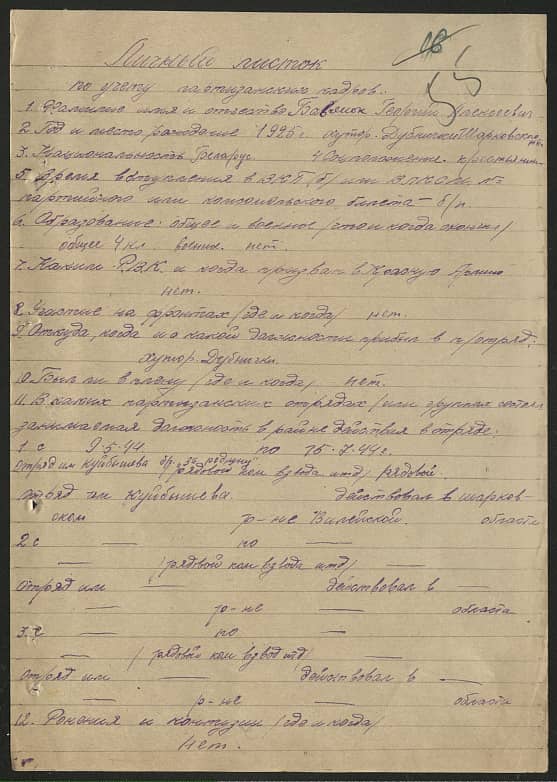 18
Личный листок
по учету партизанских кадров.
1. Фамилие имя и отчество Бавтюк Георгий
2. Год и место рождение 1925 г. хутор. Дубнички Шарковско
3. Национальность Беларус. 4 Соцположение крестьянин
5. Время вступления в ВКП(б) или ВЛКСМ. №
партийного или комсомольского билета – б/п
6. Образование: общее и военное /что и когда окончил/
общее 4 кл. военное. нет.
7. Каким РВК и когда призван в Красную Армию
нет.
8. Участие на фронтах /где и когда/ нет.
9. Откуда, когда и с какой должности прибыл в п/отряд:
хутор. Дубнички.
10. Был ли в плену /где и когда/ нет.
11. В каких партизанских отрядах /или группах состоял
занимаемая должность в районе действия в отряде:
1 с 9-5-44 по 15-7-44 г.
Отряд им Куйбышева бр. "За родину" /рядовой ком взвода итд/ рядовой.
Отряд им Куйбышева. действовал в шарков-
ском р-не Вилейской. области
2 с — по —
/рядовой ком взвода итд/ —
Отряд им — действовал в —
— р-не — области
3. с — по —
— /рядовой ком взвод итд/ —
Отряд им — действовал в —
— р-не — области
12. Ренения и контузии /где и когда/
Нет.